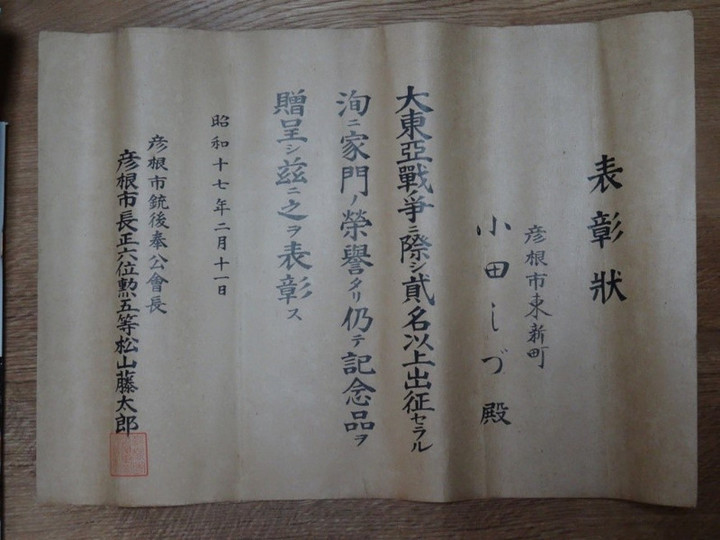 表彰狀
彦根市東新町
小田しづ殿
大東亞戰爭ニ際シ貳名以上出征セラル
洵ニ家門ノ榮譽タリ仍テ記念品ヲ
贈呈シ玆ニ之ヲ表彰ス
昭和十七年二月十一日
彦根市銃後奉公會長
彦根市長正六位勲五等松山藤太郎